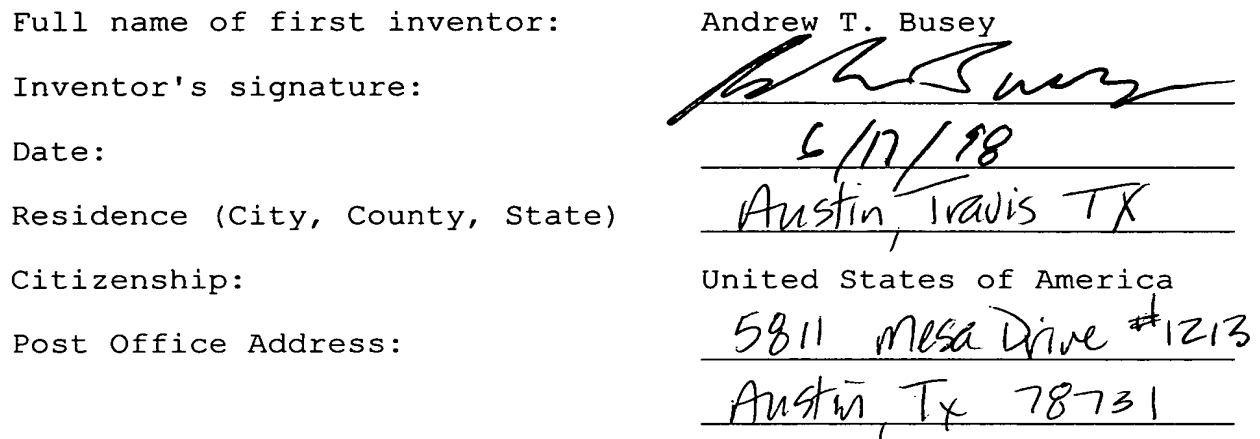 Full name of first inventor: Andrew T. Busey
Inventor's signature: Busey
Date: 6/17/98
Residence (City, County, State) Austin, Travis TX
Citizenship: United States of America
Post Office Address: 5811 Mesa Drive #1213
Austin, Tx 78731